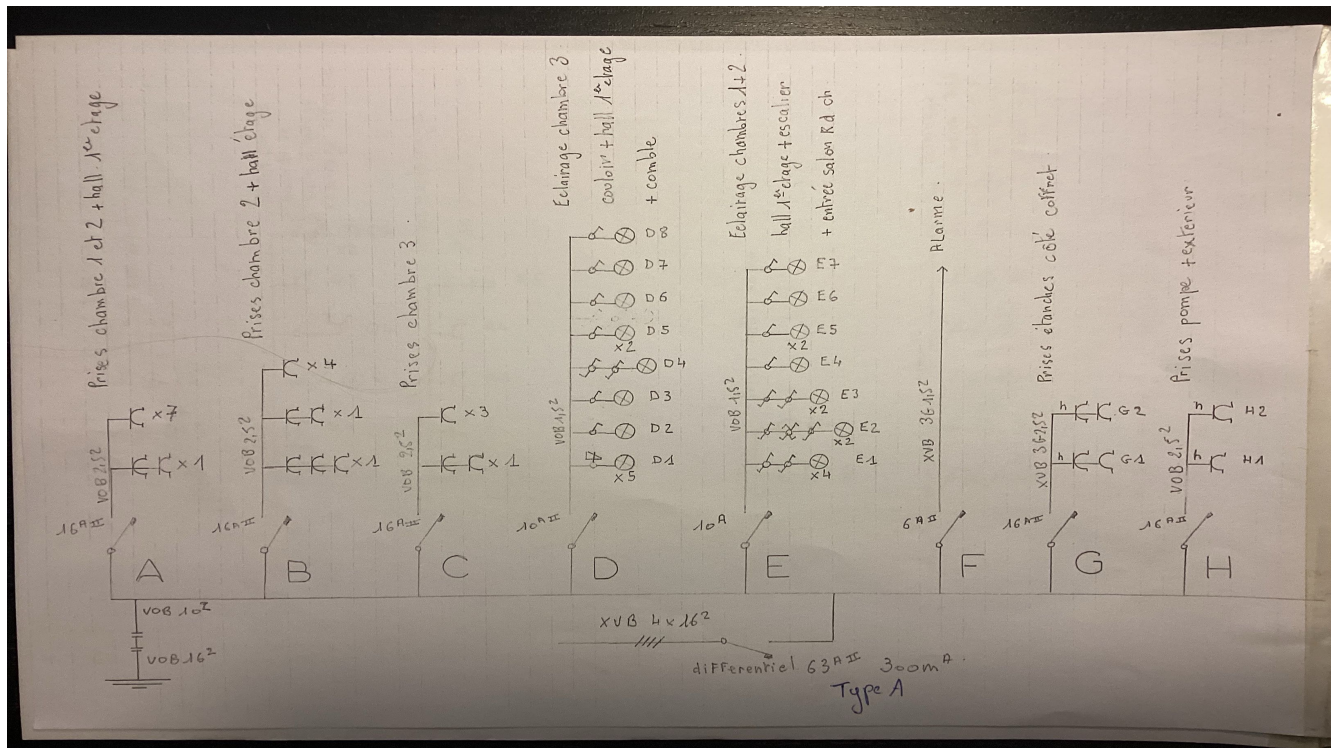 Prises chambre 1 et 2 + hall 1er etage
VOB 2,5²
x7
x1
16A II
A
Prises chambre 2 + hall étage
VOB 2,5²
x7
x1
x1
16A II
B
Prises chambre 3
VOB 2,5²
x3
x1
16A II
C
Eclairage chambre 3
couloir + hall 1er etage
+ comble
VOB 1,5²
D8
D7
D6
D5
x2
D4
D3
D2
D1
x5
10A II
D
Eclairage chambres 1+2
hall 1er etage + escalier
+ entrée salon Rd ch
VOB 1,5²
E7
E6
E5
x2
E4
E3
x2
E2
x2
E1
x4
10A
E
Alarme
XVB 3G1,5²
6A II
F
Prises étanches côté coffret
XVB 3G2,5²
h
G2
h
G1
16A II
G
Prises pompe + exterieur
VOB 2,5²
h
H2
h
H1
16A II
H
VOB 10²
VOB 16²
XVB 4x16²
differentiel 63A II 300mA
Type A